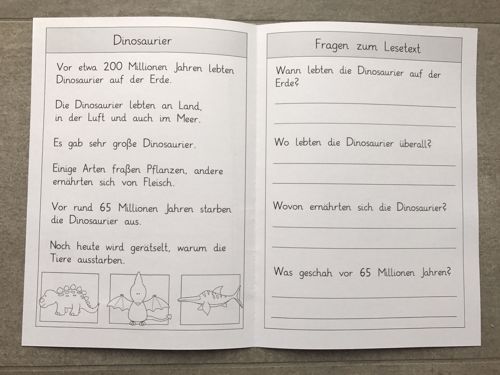 Dinosaurier
Vor etwa 200 Millionen Jahren lebten
Dinosaurier auf der Erde.
Die Dinosaurier lebten an Land,
in der Luft und auch im Meer.
Es gab sehr große Dinosaurier.
Einige Arten fraßen Pflanzen, andere
ernährten sich von Fleisch.
Vor rund 65 Millionen Jahren starben
die Dinosaurier aus.
Noch heute wird gerätselt, warum die
Tiere ausstarben.
Fragen zum Lesetext
Wann lebten die Dinosaurier auf der
Erde?
Wo lebten die Dinosaurier überall?
Wovon ernährten sich die Dinosaurier?
Was geschah vor 65 Millionen Jahren?